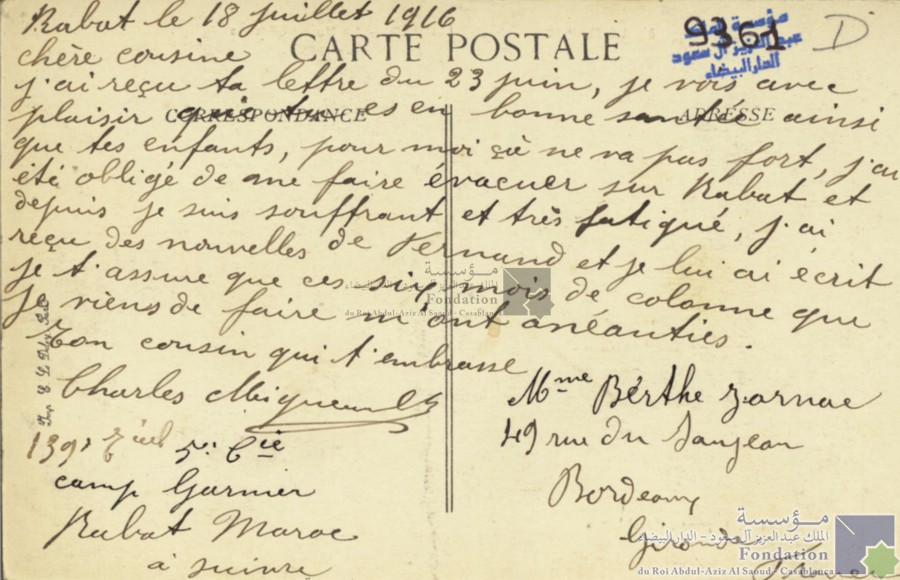 Rabat le 18 juillet 1916
chère cousine
CARTE POSTALE
9361
D
مؤسسة الملك
عبد العزيز آل سعود
الدار البيضاء
j'ai reçu ta lettre du 23 juin, je vois avec
CORRESPONDANCE
ADRESSE
plaisir que tu es en bonne santée ainsi
que tes enfants, pour moi çà ne va pas fort, j'ai
été obligé de me faire évacuer sur Rabat et
depuis je suis souffrant et très fatigué, j'ai
reçu des nouvelles de Fernand et je lui ai écrit
je t'assure que ces six mois de colonne que
je viens de faire m'ont anéanties.
Ton cousin qui t'embrasse
Charles
139e 5e Cie
camp Garnier
Rabat Maroc
à suivre
Mme Bérthe Jarnac
49 rue du
Bordeaux
Gironde
مؤسسة
الملك عبد العزيز آل سعود - الدار البيضاء
Fondation
du Roi Abdul-Aziz Al Saoud - Casablanca
مؤسسة
الملك عبد العزيز آل سعود - الدار البيضاء
Fondation
du Roi Abdul-Aziz Al Saoud - Casablanca